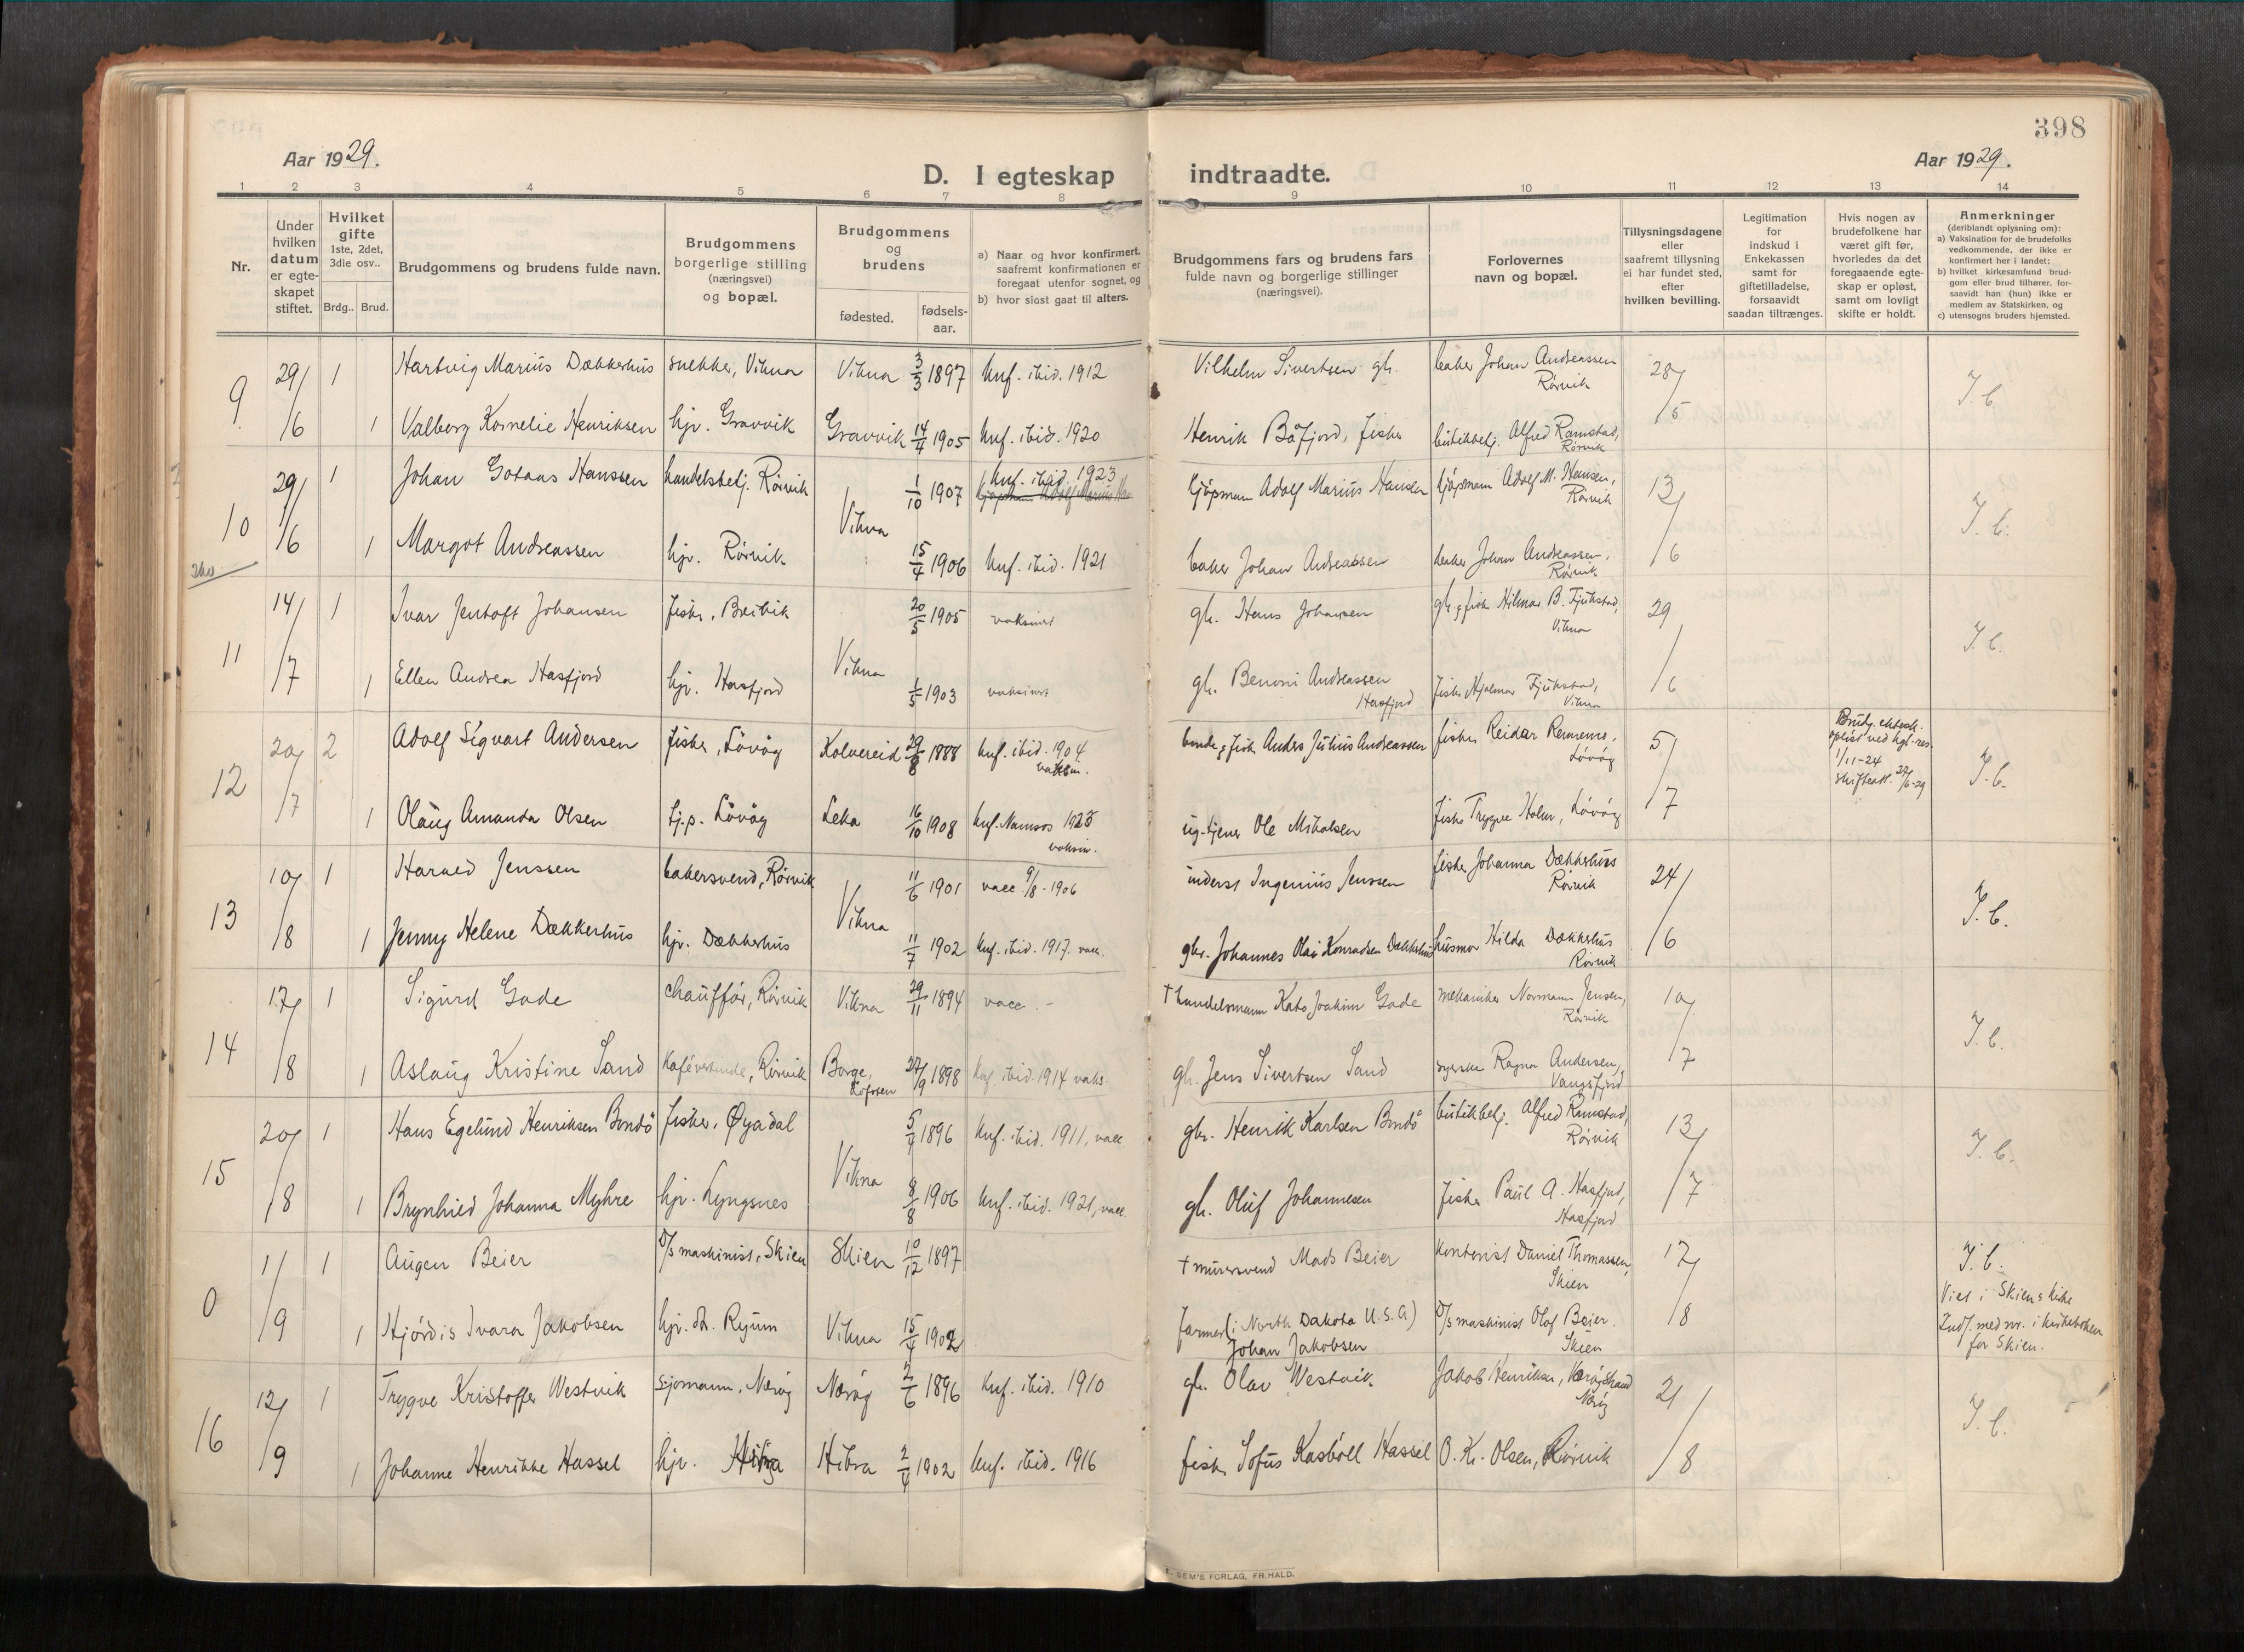 398
Aar 1929.
Aar 1929.
D. I egteskap indtraadte.
1 2 3 4 5 6 7 8 9 10 11 12 13 14
Nr.
Under hvilken datum er egte-skapet stiftet.
Hvilket gifte
1ste, 2det, 3die osv..
Brdg.. Brud.
Brudgommens og brudens fulde navn.
Brudgommens borgerlige stilling (næringsvei) og bopæl.
Brudgommens og brudens
fødested. fødsels-aar.
a) Naar og hvor konfirmert, saafremt konfirmationen er foregaat utenfor sognet, og
b) hvor sidst gaat til alters.
Brudgommens fars og brudens fars fulde navn og borgerlige stillinger (næringsvei).
Forlovernes navn og bopæl.
Tillysningsdagene eller saafremt tillysning ei har fundet sted, efter hvilken bevilling.
Legitimation for indskud i Enkekassen samt for giftetilladelse, forsaavidt saadan tiltrænges.
Hvis nogen av brudefolkene har været gift før, hvorledes da det foregaaende egte-skap er opløst, samt om lovligt skifte er holdt.
Anmerkninger
(deriblandt oplysning om):
a) Vaksination for de brudefolks vedkommende, der ikke er konfirmert her i landet;
b) hvilket kirkesamfund brud-gom eller brud tilhører, for-saavidt han (hun) ikke er medlem av Statskirken, og
c) utensogns bruders hjemsted.
9 29/6 1 Hartvig Marius Dækkerhus snekker, Vikna Vikna 3/3 1897 knf. ibid. 1912 Vilhelm Sivertsen gh. baker Johan Andreassen Rørvik 28/5 J. b.
1 Valborg Kornelie Henriksen hjv. Gravvik Gravvik 14/4 1905 knf. ibid. 1920 Henrik Båfjord, fisker butikkbetj. Alfred Ramstad, Rørvik
10 29/6 1 Johan Gotaas Hanssen handelsbetj. Rørvik Vikna 1/10 1907 knf. ibid. 1923 kjøpmann Adolf Marius Hansen kjøpmann Adolf M. Hansen, Rørvik 13/6 J. b.
1 Margot Andreassen hjv. Rørvik 15/4 1906 knf. ibid. 1921 baker Johan Andreassen baker Johan Andreassen, Rørvik
11 14/7 1 Ivar Jentoft Johansen fisker, Breivik Vikna 20/5 1905 vaksinert gh. Hans Johansen gh. & fisker Hilmar B. Fjukstad, Vikna 29/6 J. b.
1 Ellen Andrea Hasfjord hjv. Hasfjord 1/5 1903 vaksinert gh. Benoni Andreassen Hasfjord fisker Hjalmar Fjukstad, Vikna
12 20/7 2 Adolf Sigvart Andersen fisker, Løvøy Kolvereid 1888 knf. ibid. 1904. vaksin. Anders Julius Andreassen fisker Reidar Løvøy 5/7 Brudg. ektesk. opløst ved kgl. res. 1/11-24 J. b.
1 Olaug Amanda Olsen tj.p. Løvøy Leka 16/10 1908 knf. Namsos 1923 vaksin. Ole Mikalsen fisker Trygve Holm, Løvøy
13 10/8 1 Harald Jenssen bakersvend, Rørvik Vikna 11/6 1901 vacc 9/8-1906 inderst Ingenius Jenssen fisker Johannes Dækkerhus Rørvik 24/6 J. b.
1 Jenny Helene Dækkerhus hjv. Dækkerhus 11/7 1902 knf. ibid. 1917. vacc. gbr. Johannes Olai Konradsen Dækkerhus husmor Hilda Dækkerhus Rørvik
14 17/8 1 Sigurd Gade chauffør, Rørvik Vikna 29/11 1894 vacc. - † handelsmann Kato Joakim Gade mekaniker Normann Jensen, Rørvik 10/7 J. b.
1 Aslaug Kristine Sand Kafévertinde, Rørvik Borge, Lofoten 27/9 1898 knf. ibid. 1914 vaks. gh. Jens Sivertsen Sand syerske Ragna Andersen, Vangsfjord
15 20/8 1 Hans Egelund Henriksen Bondø fisker, Øyadal Vikna 5/7 1896 knf. ibid. 1911, vacc. gbr. Henrik Karlsen Bondø butikkbetj. Alfred Ramstad, Rørvik 13/7 J. b.
1 Brynhild Johanna Myhre hjv. Lyngsnes 8/8 1906 knf. ibid. 1921, vacc. gh. Oluf Johannesen fisker Paul A. Hasfjord, Hasfjord
0 1/9 1 Augen Beier D/s maskinist, Skien Skien 10/12 1897 † murersvend Mads Beier kontorist Daniel Thomassen, Skien 17/8 J. b.
1 Hjørdis Ivara Jakobsen hjv. Ryum Vikna 15/4 1902 farmer (i North Dakota U.S.A) Johan Jakobsen D/s maskinist Olaf Beier. Skien Viet i Skiens kirke Indf. med nr. i kirkeboken for Skien.
16 12/9 1 Trygve Kristoffer Westvik sjømann, Nærøy Nærøy 2/6 1896 knf. ibid. 1910 gh. Olav Westvik Jakob Henriksen, Nærøystrand Nærøy 21/8 J. b.
1 Johanne Henrikke Hassel hjv. Hitra Hitra 2/4 1902 knf. ibid. 1916 fisker Sofus Kasbøll Hassel O. Kr. Olsen, Rørvik
E. SEM'S FORLAG, FR.HALD.